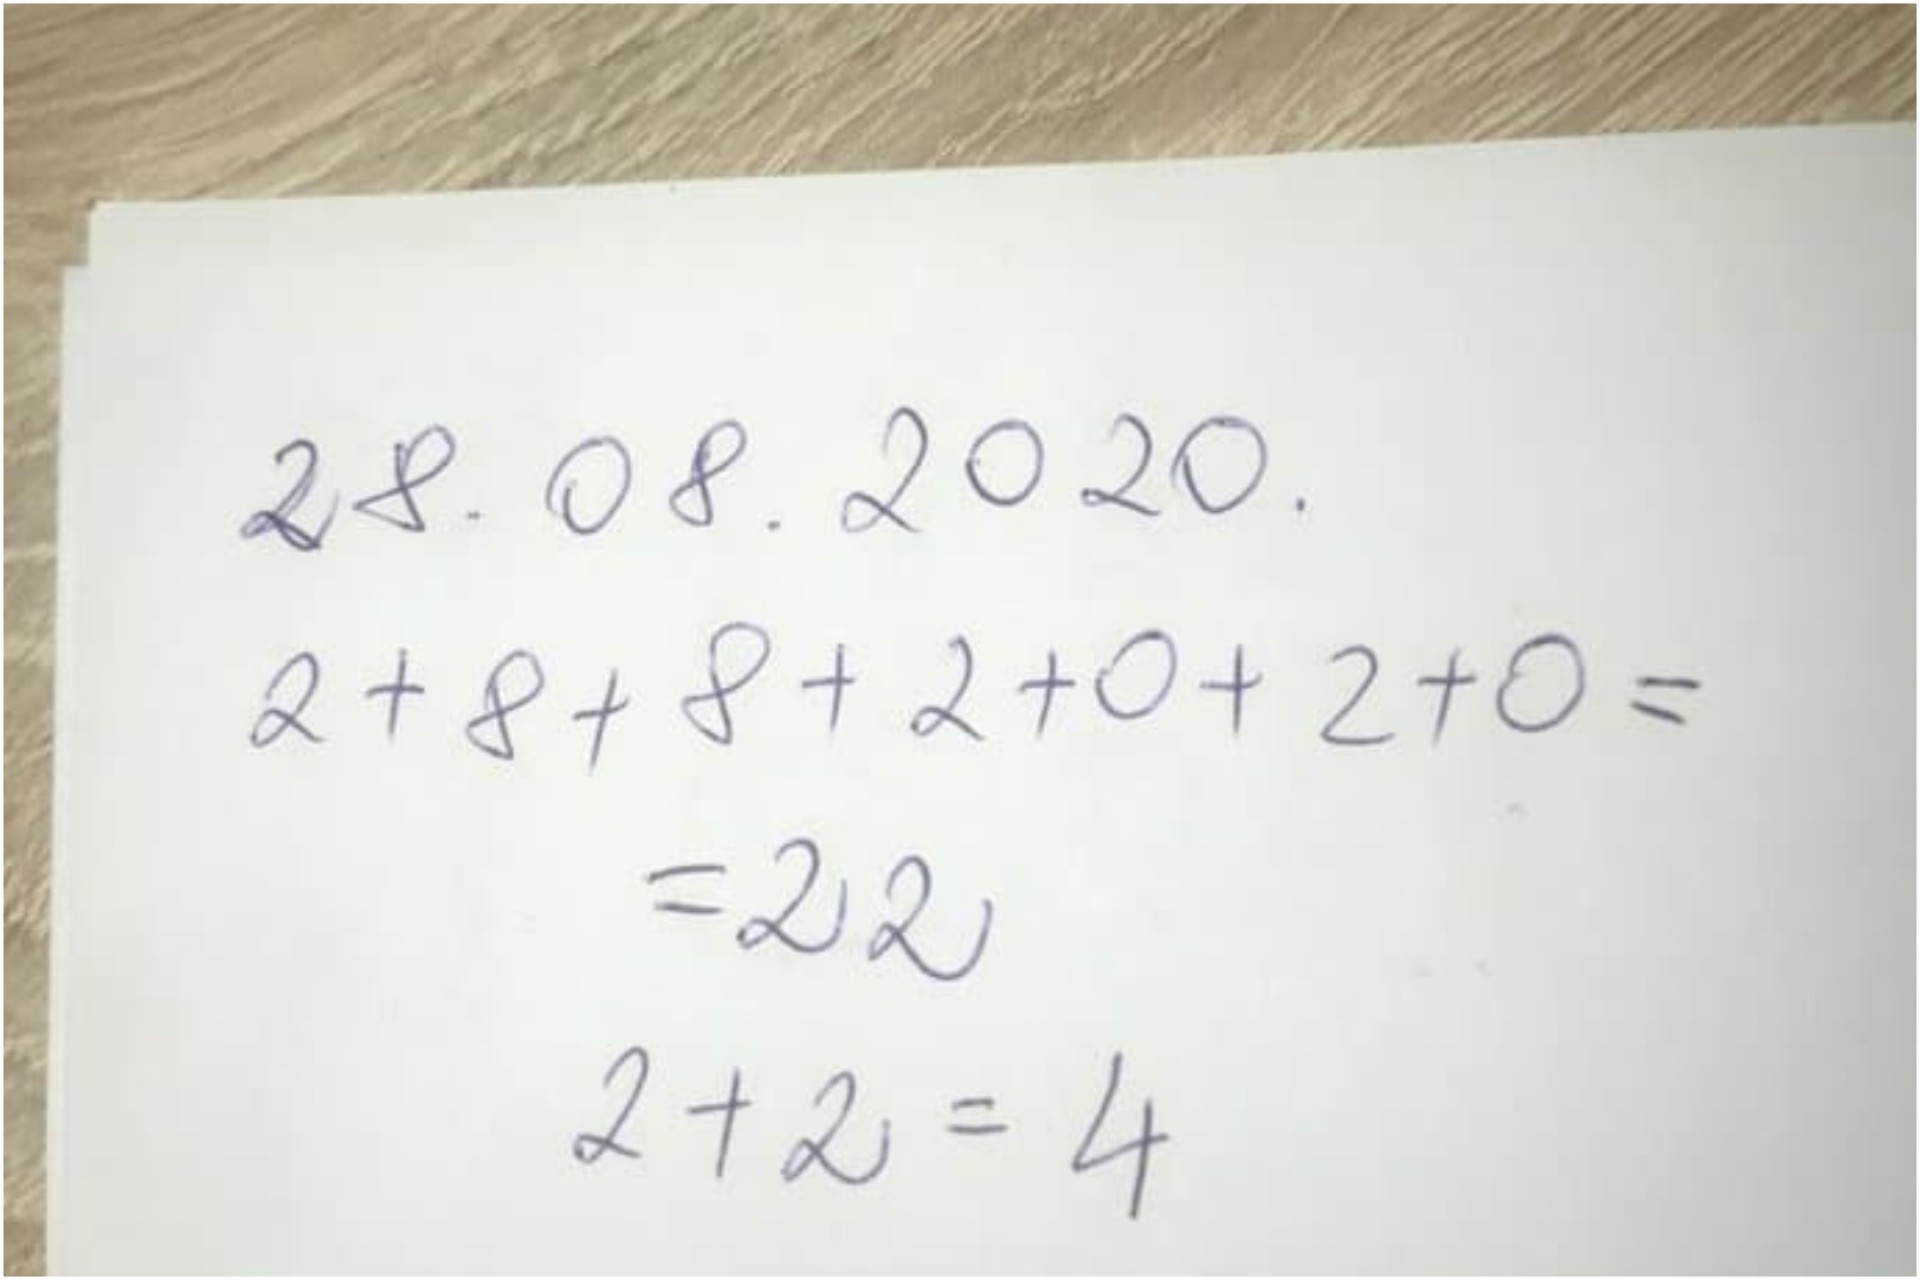 28.08.2020.
2+8+8+2+0+2+0=
=22
2+2=4